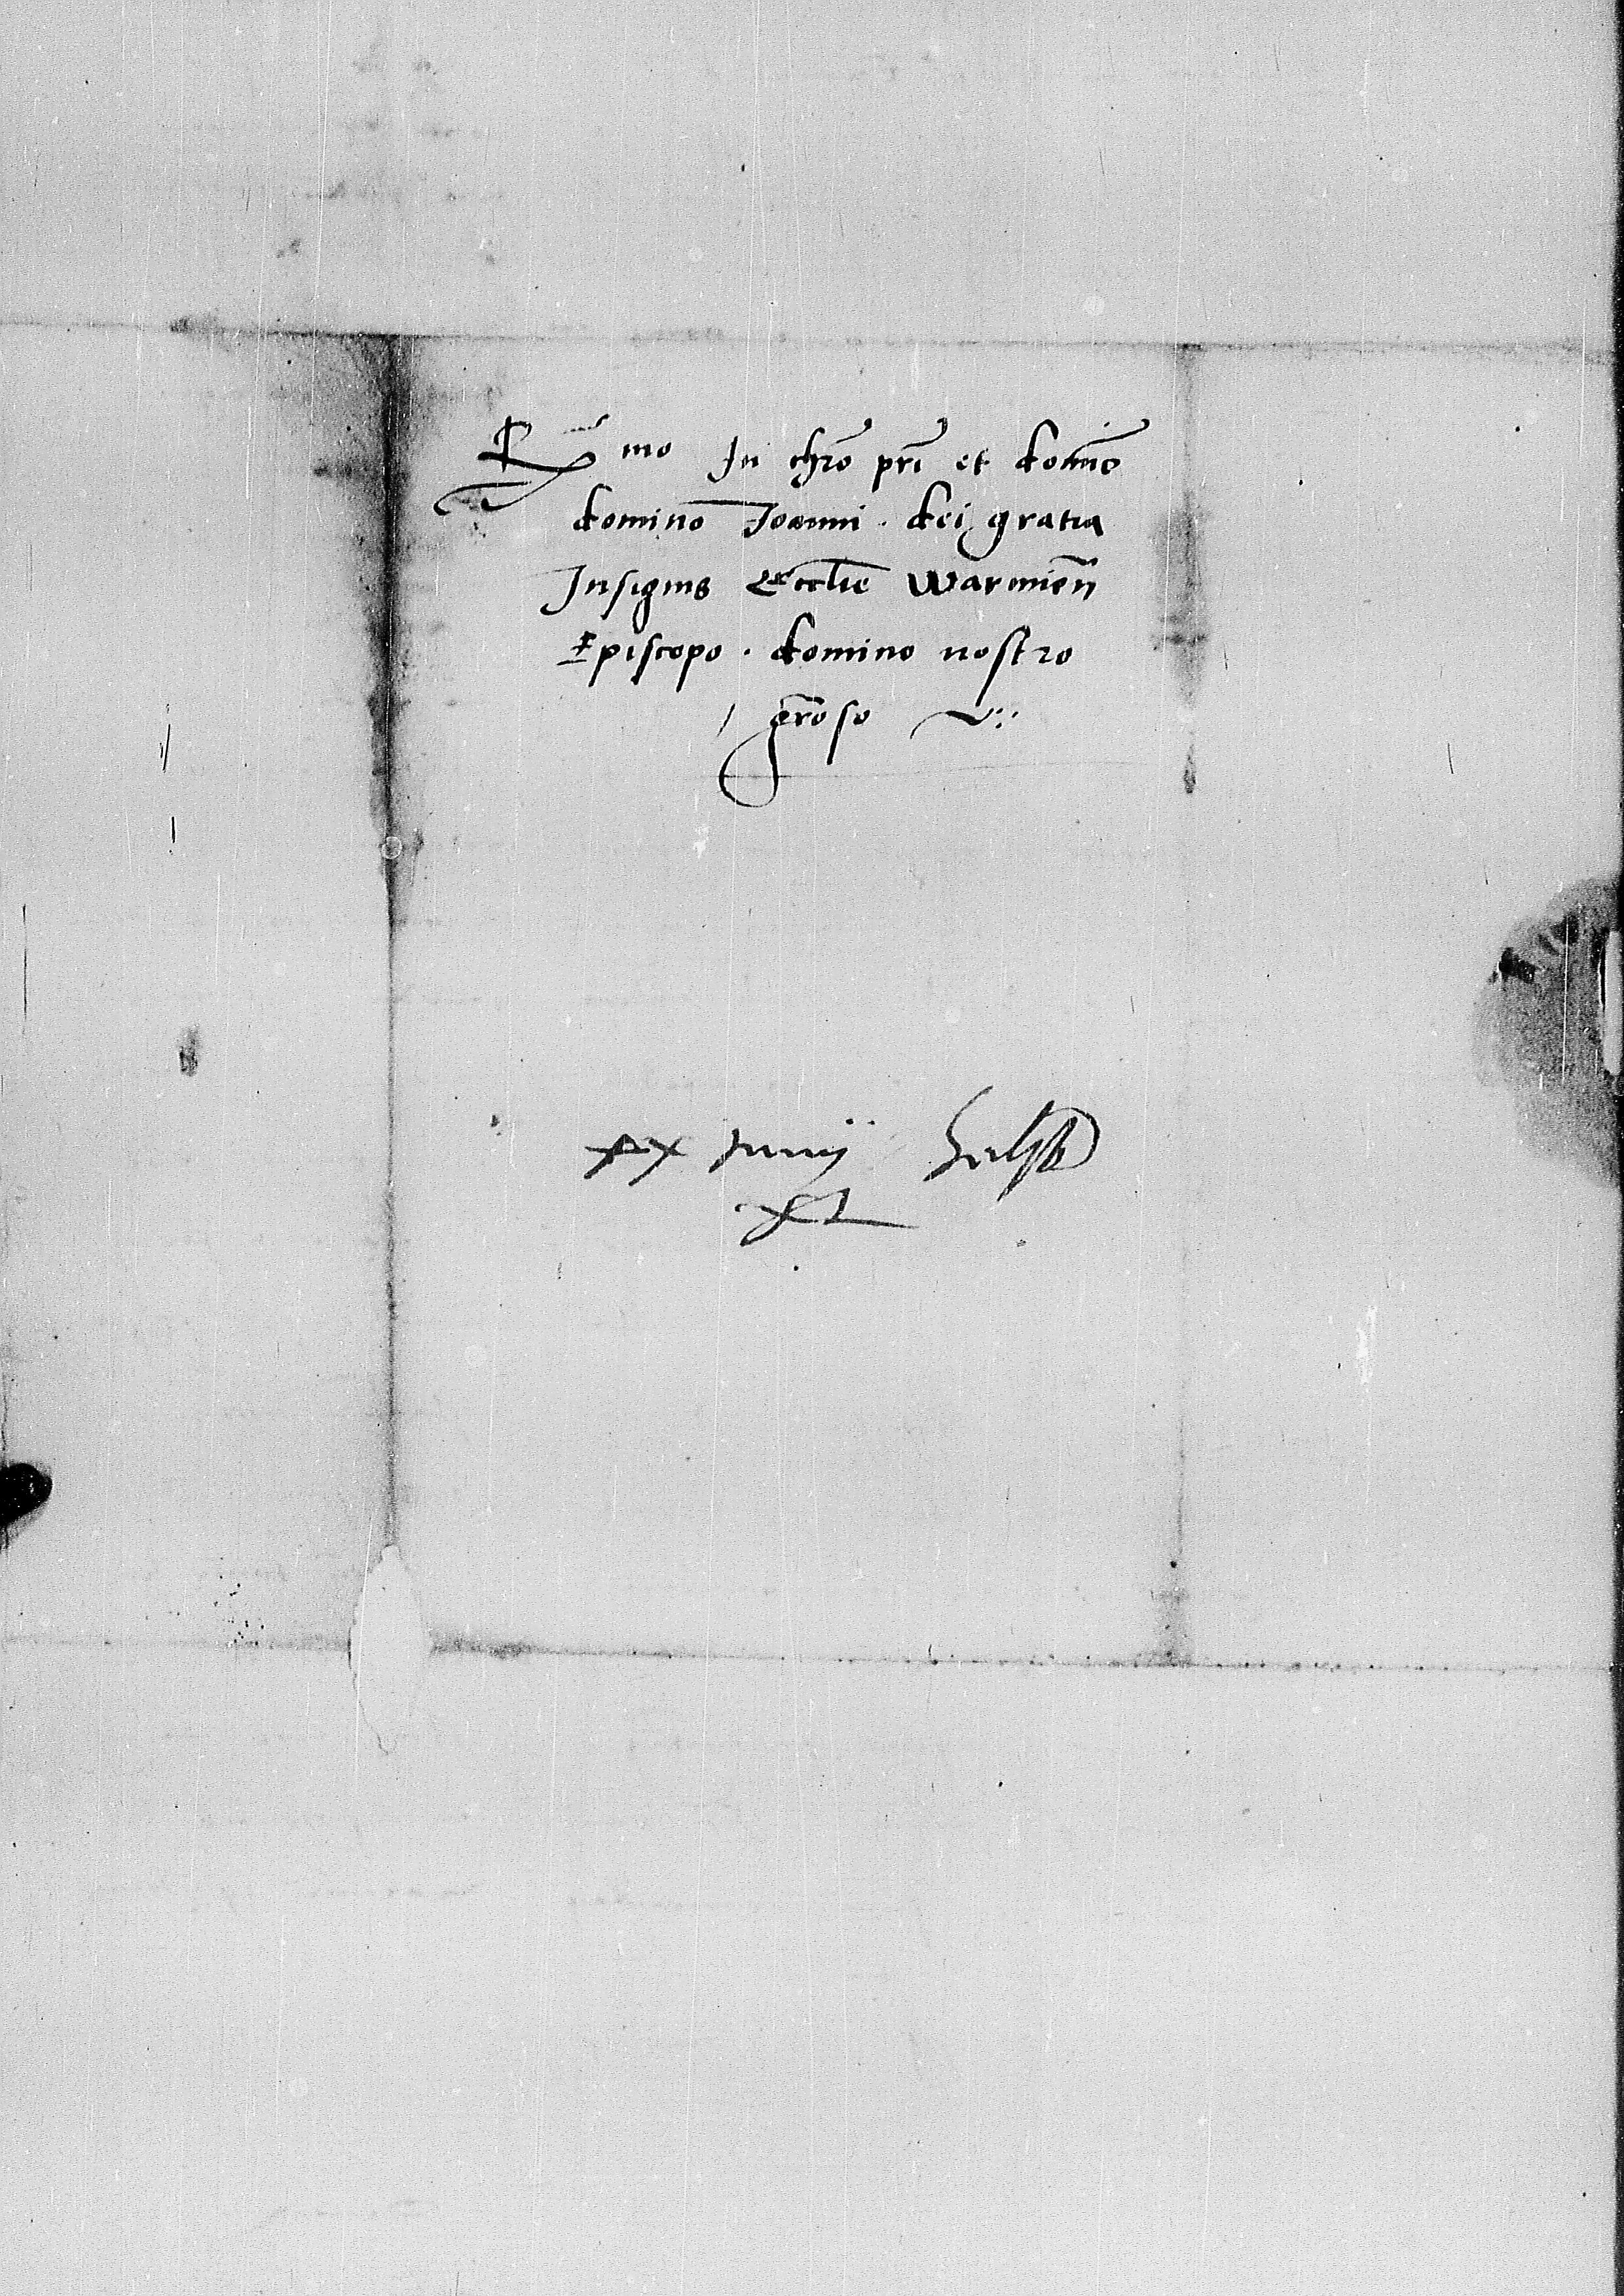 R mo In chr̄o pr̄i et domīo
domino Joanni . dei gratia
Insignis Eccl̄ie Warmien̄
Episcopo . domino nostro
gr̄oso
xx Junij
xl